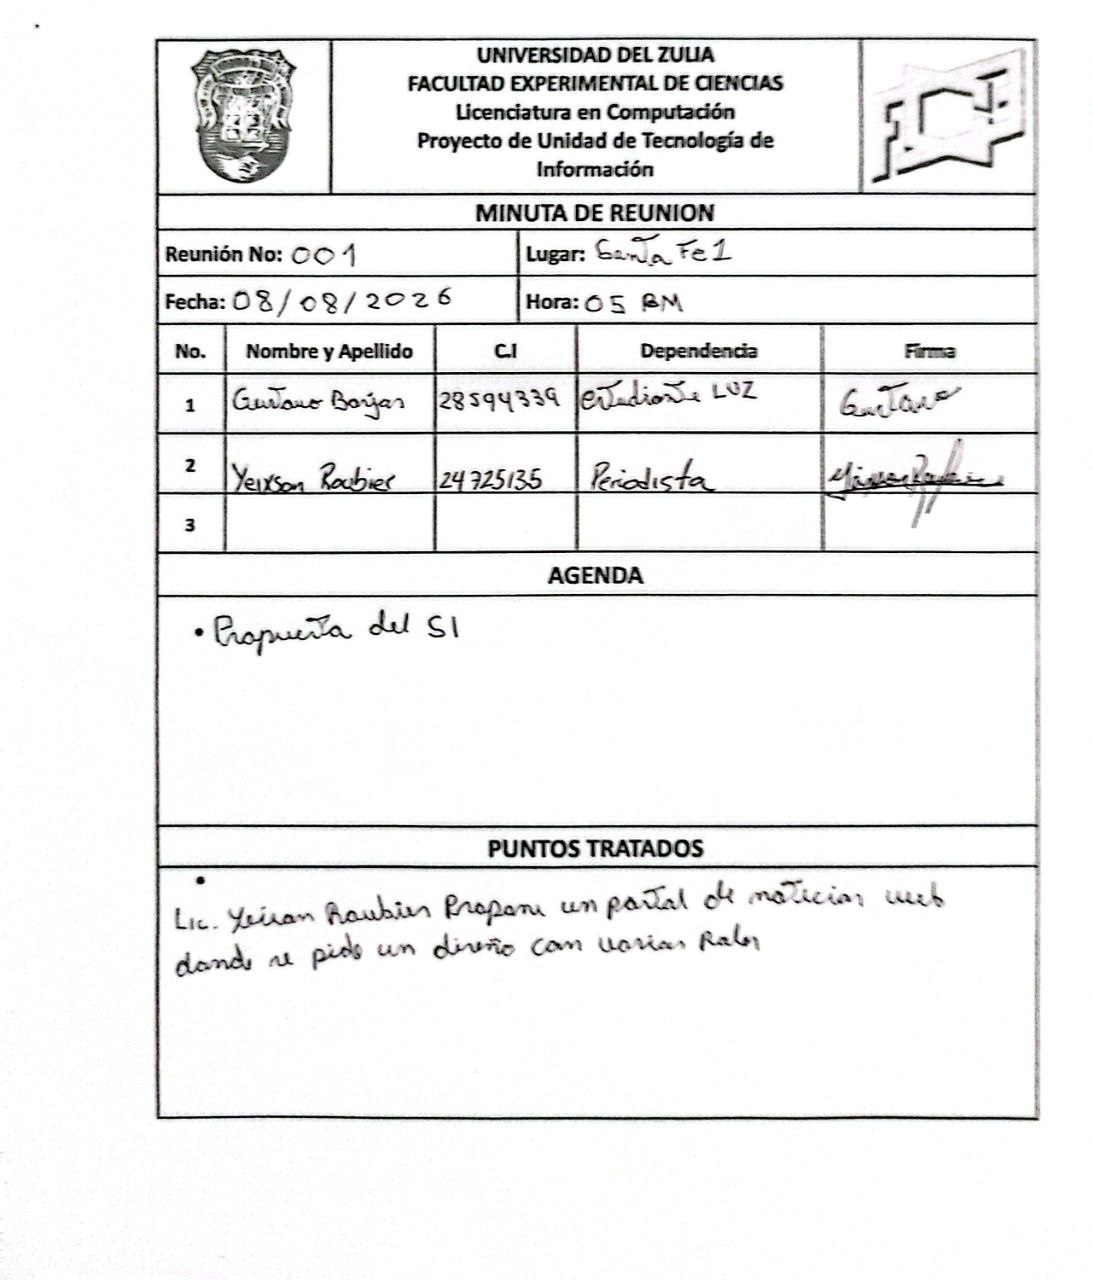 UNIVERSIDAD DEL ZULIA
FACULTAD EXPERIMENTAL DE CIENCIAS
Licenciatura en Computación
Proyecto de Unidad de Tecnología de
Información
MINUTA DE REUNION
Reunión No: 001 Lugar: Santa Fe 1
Fecha: 08/08/2026 Hora: 05 PM
No. Nombre y Apellido C.I Dependencia Firma
1 Gustavo Borjas 28594339 estudiante LUZ Gustavo
2 Yeixson Roubier 24725135 Periodista
3
AGENDA
• Propuesta del SI
PUNTOS TRATADOS
•
Lic. Roubier Propone un portal de noticias web
donde se pide un diseño con varios Roles